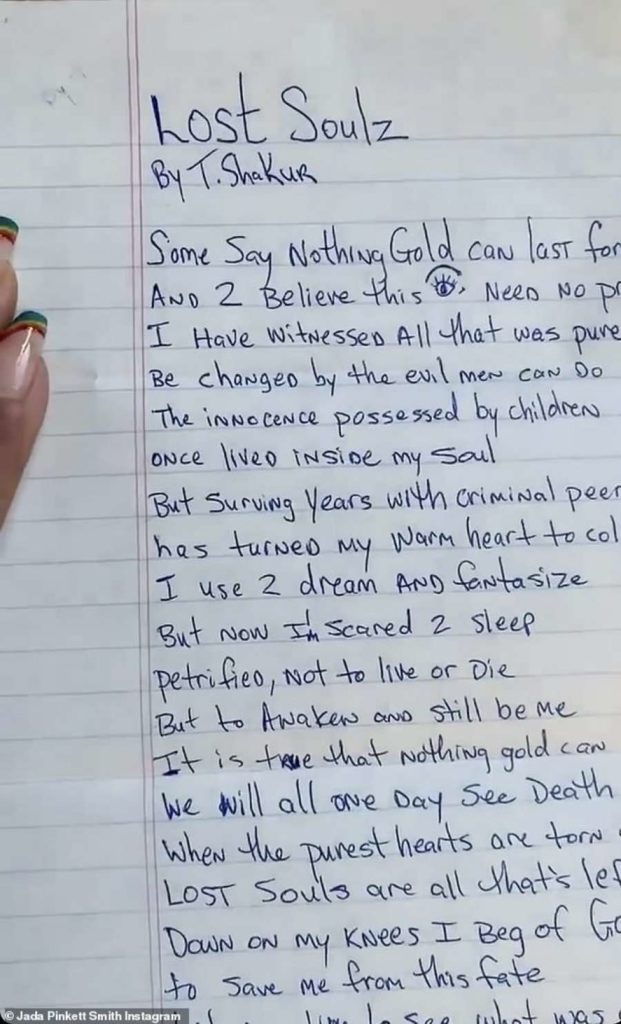 Lost Soulz
By T. Shakur
Some Say Nothing Gold can last for
AND 2 Believe this, Need No pr
I Have witnessed All that was pure
Be changed by the evil men can Do
The innocence possessed by children
once lived inside my soul
But Surving Years with criminal peer
has turned my warm heart to col
I use 2 dream AND fantasize
But now I'm scared 2 sleep
petrified, Not to live or Die
But to Awaken and still be me
It is true that nothing gold can
We will all one Day See Death
When the purest hearts are torn
LOST Souls are all that's lef
Down on my knees I Beg of Go
to save me from this fate
to see what was
© Jada Pinkett Smith Instagram